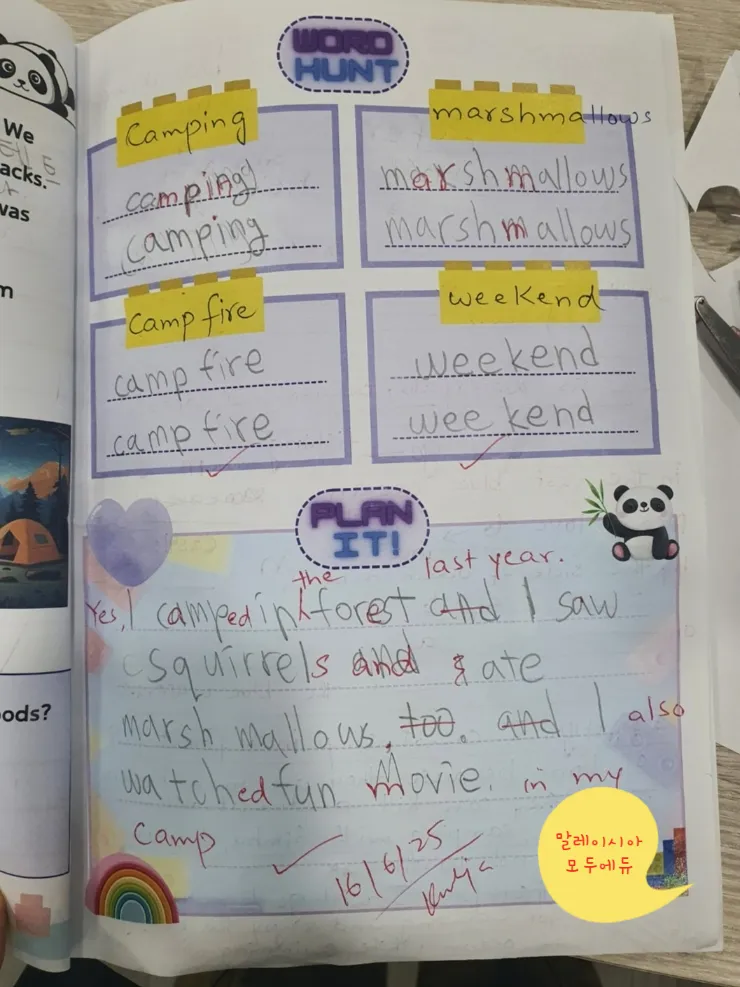 We
acks.
was
m
ods?
WORD
HUNT
Camping
camping
camping
marshmallows
marshmallows
marshmallows
Campfire
campfire
campfire
weekend
weekend
weekend
PLAN
IT!
the last year.
Yes, I camped in forest and I saw
squirrels and & ate
marshmallows. too. and I also
watched fun Movie. in my
Camp
16/6/25
말레이시아
모두에듀